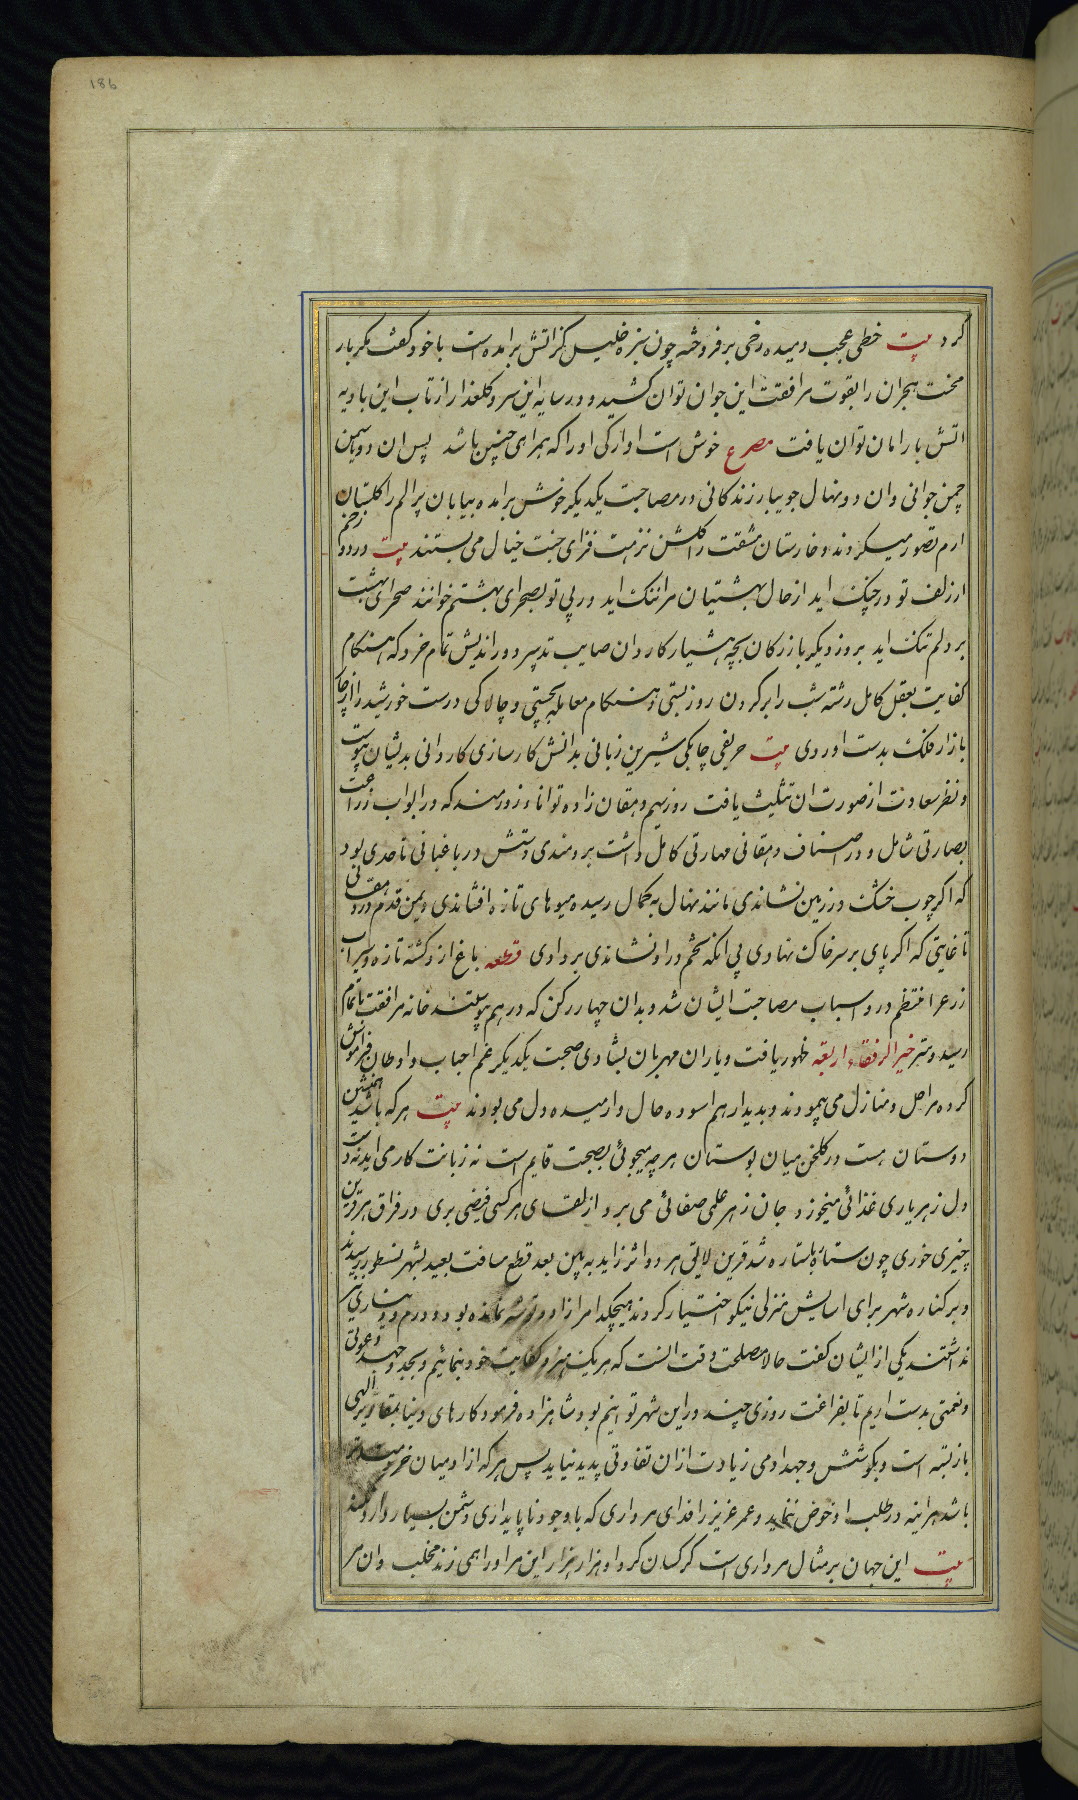 186
کرد بیت خطی عجب دمیده رخی برفروخته چون سبزه خلیل کز اتش برامده است با خود گفت مگر بار
محنت هجران را بقوت مرافقت این جوان توان کشید و در سایه این سرو گلعذار از تاب این بادیه
اتش بار امان توان یافت مصرع خوش است اوارگی اورا که همراهی چنین باشد پس ان دو یاسمین
چمن جوانی وان دو نهال جویبار زندگانی در مصاحبت یکدیگر خوش برامده بیابان پر الم را گلستان
ارم تصور میکردند و خارستان مشقت را گلشن نزهت فزای جنت خیال می بستند بیت در دوزخم
ار زلف تو در چنگ اید از حال بهشتیان مرا ننگ اید ور بی تو بصحرای بهشتم خوانند صحرای بهشت
بر دلم تنگ اید بروز دیگر بازرگان بچه هشیار کاردان صایب تدبیر دوراندیش تمام خرد که هنگام
کفایت بعقل کامل رشته شب را بر گردن روز بستی و هنگام معامله بچستی و چالاکی درست خورشید را از چار
بازار فلک بدست اوردی بیت حریفی چابکی شیرین زبانی بدانش کارسازی کاردانی بدیشان پیوست
و نظر سعادت از صورت ان تثلیث یافت روز سیم دهقان زاده توانا و زورمند که در ابواب زراعت
بصارتی شامل و در اصناف دهقانی مهارتی کامل داشت برومندی دستش در باغبانی تا حدی بود
که اگر چوب خشک در زمین نشاندی مانند نهال به کمال رسیده میوهای تازه افشاندی و یمن قدم در دهقانی
تا غایتی که اگر پای بر سر خاک نهادی بی انکه تخم در او نشاندی بر دادی قطعه باغ از او گشته تازه و سیراب
زرع را منتظم در و اسباب مصاحبت ایشان شد و بدان چهار رکن که در هم پیوستند خانه مرافقت باتمام
رسید و سر خیر الرفقاء اربعة ظهور یافت و یاران مهربان بشادی صحبت یکدیگر غم احباب و اوطان فراموش
کرده مراحل و منازل می پیمودند و بدیدار هم اسوده حال و ارمیده دل می بودند بیت هر که باشد همنشین
دوستان هست در گلخن میان بوستان هر چه میجوئی بصحبت قایم است نه زبانت کار می اید نه دست
دل ز هر یاری غذائی میخورد جان ز هر علمی صفائی می برد از لقای هر کسی فیضی بری در فراق هر قرین
چیزی خوری چون ستاره با ستاره شد قرین لایق هر دو اثر زاید به بین بعد قطع مسافت بعید بشهر نسطور رسیدند
و بر کناره شهر برای اسایش منزلی نیکو اختیار کردند هیچکدام را زاد و توشه نمانده بود و درم و دیناری نیز
نداشتند یکی از ایشان گفت حالا مصلحت وقت انست که هر یک هنر و کفایت خود بنمائیم و بجد و جهد دعوتی
و نعمتی بدست اریم تا بفراغت روزی چند در این شهر توانیم بود شاهزاده فرمود کارهای دنیا بتقادیر الهی
باز بسته است و بکوشش و جهد ادمی زیادت از ان تفاوتی پدید نیاید پس هر که از ادمیان خردمندتر
باشد هراینه در طلب او خوض ننماید و عمر عزیز را فدای مرداری که با وجود ناپایداری دشمن بسیار دارد
بیت این جهان بر مثال مرداری است کرکسان گرد او هزار هزار این مر اورا همی زند مخلب وان مر